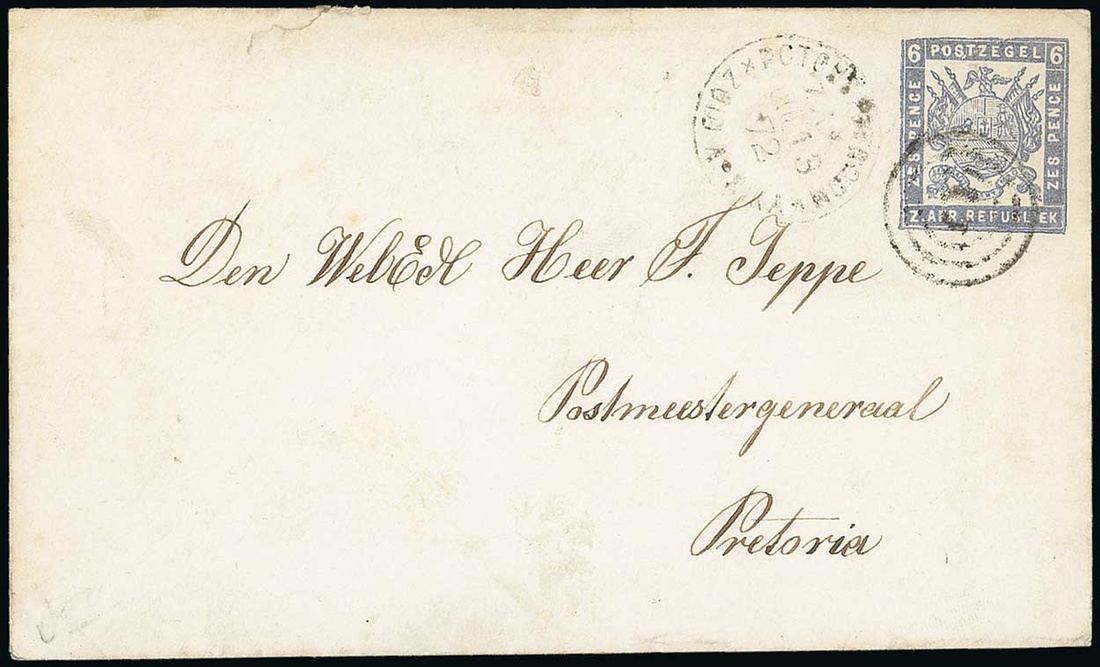 6 POSTZEGEL 6
ZES PENCE
ZES PENCE
Z. AFR. REPUBLIEK
72
Den WelEdl Heer F. Jeppe
Postmeestergeneraal
Pretoria